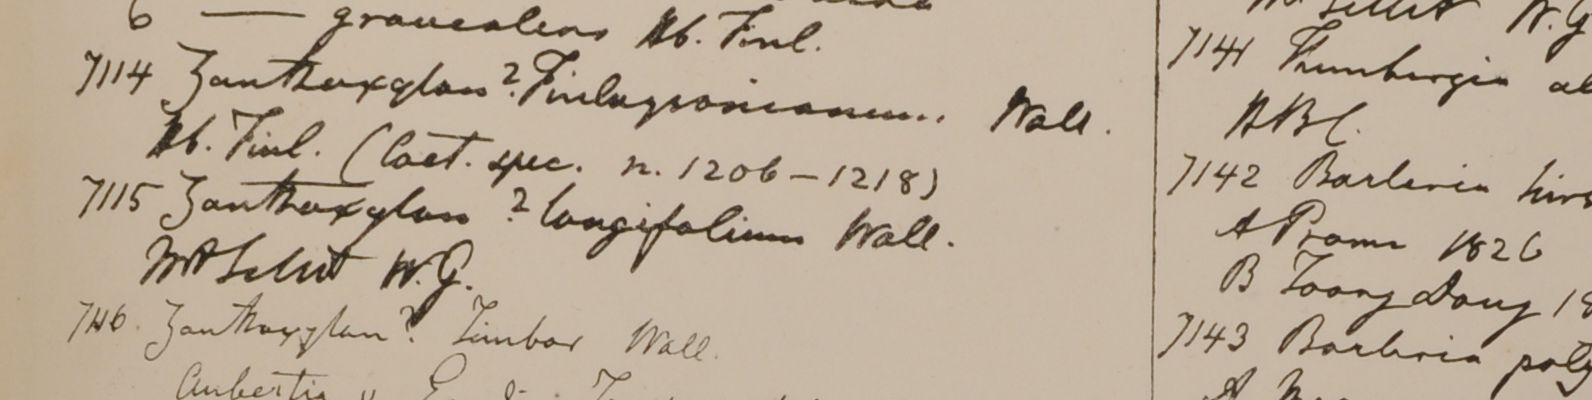 6 — graveolens Hb. Finl.
7114 Zanthoxylon? Finlaysonianum. Wall.
Hb. Finl. (Caet. spec. n. 1206–1218)
7115 Zanthoxylon ? longifolium Wall.
W. G.
7116. Zanthoxylon? Timbor Wall.
Aubertia
W. G
7141 Thunbergia al
HBC.
7142 Barleria hirs
A Prome 1826
B Toong Dong 18
7143 Barleria poly
A